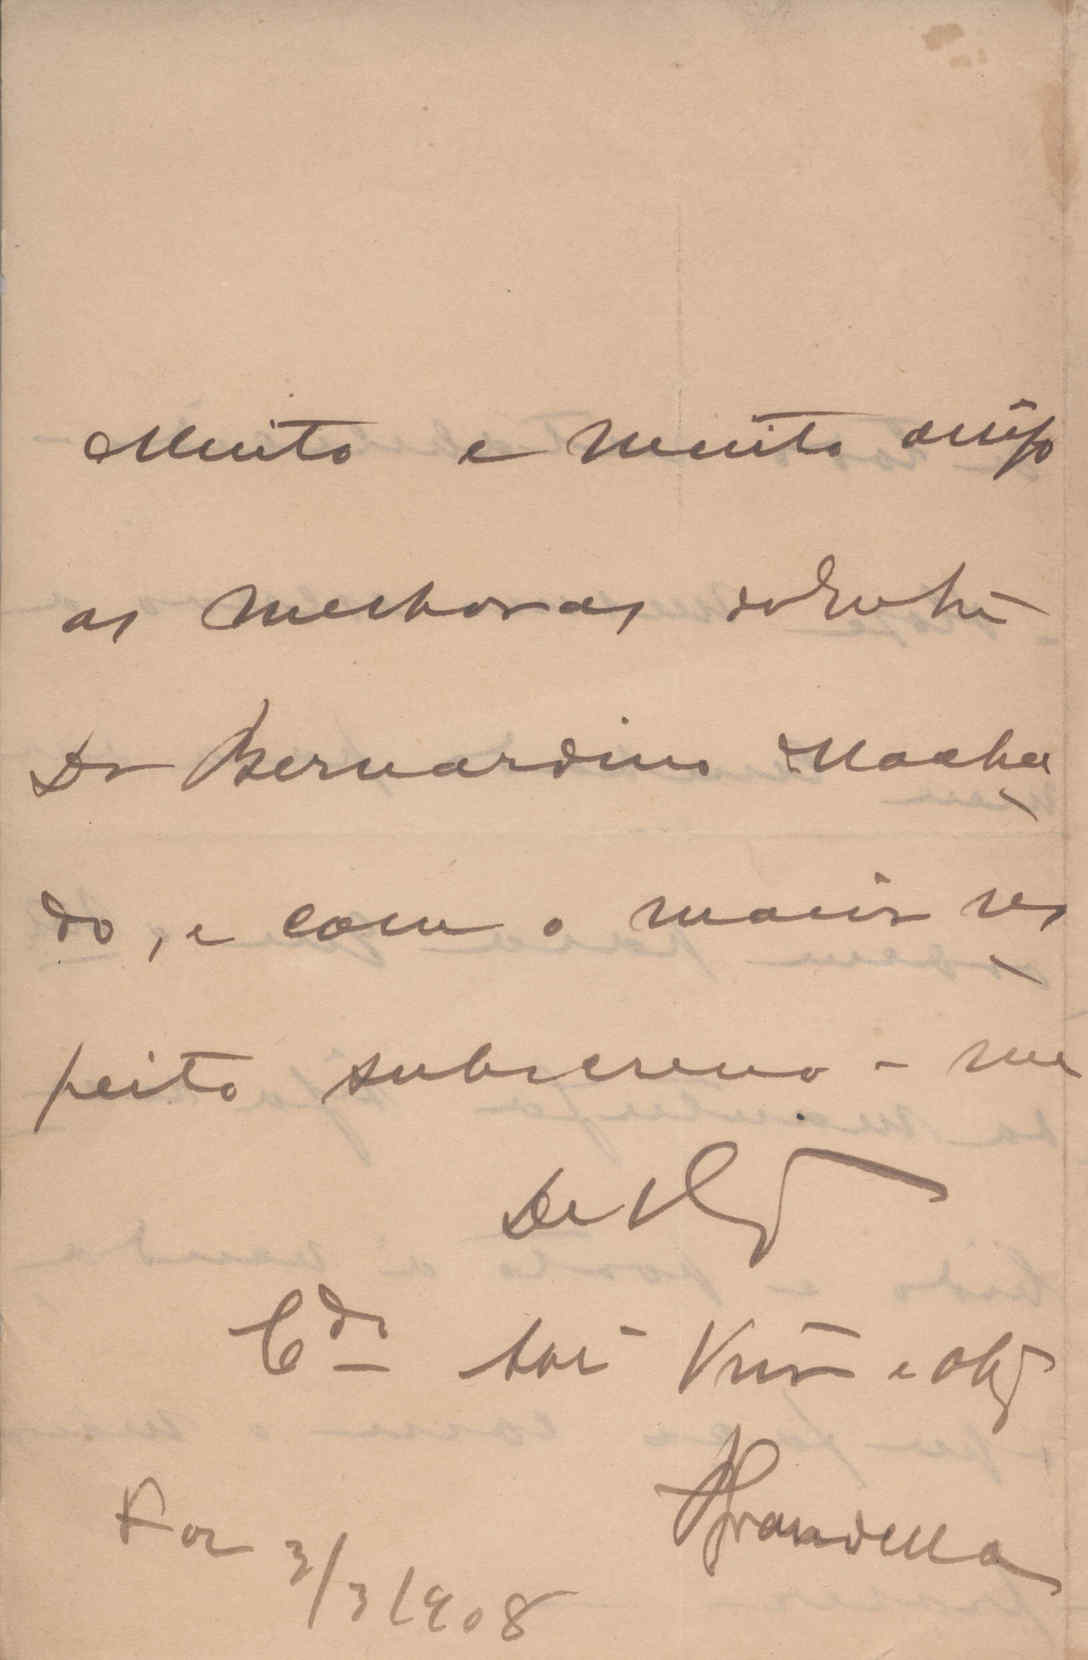 Muito e muito
as melhoras do
Dr Bernardino Macha
do, e com o maior res
peito subscrevo - me
De V
Cdo Vnr e Obg
Grandella
3/3/908